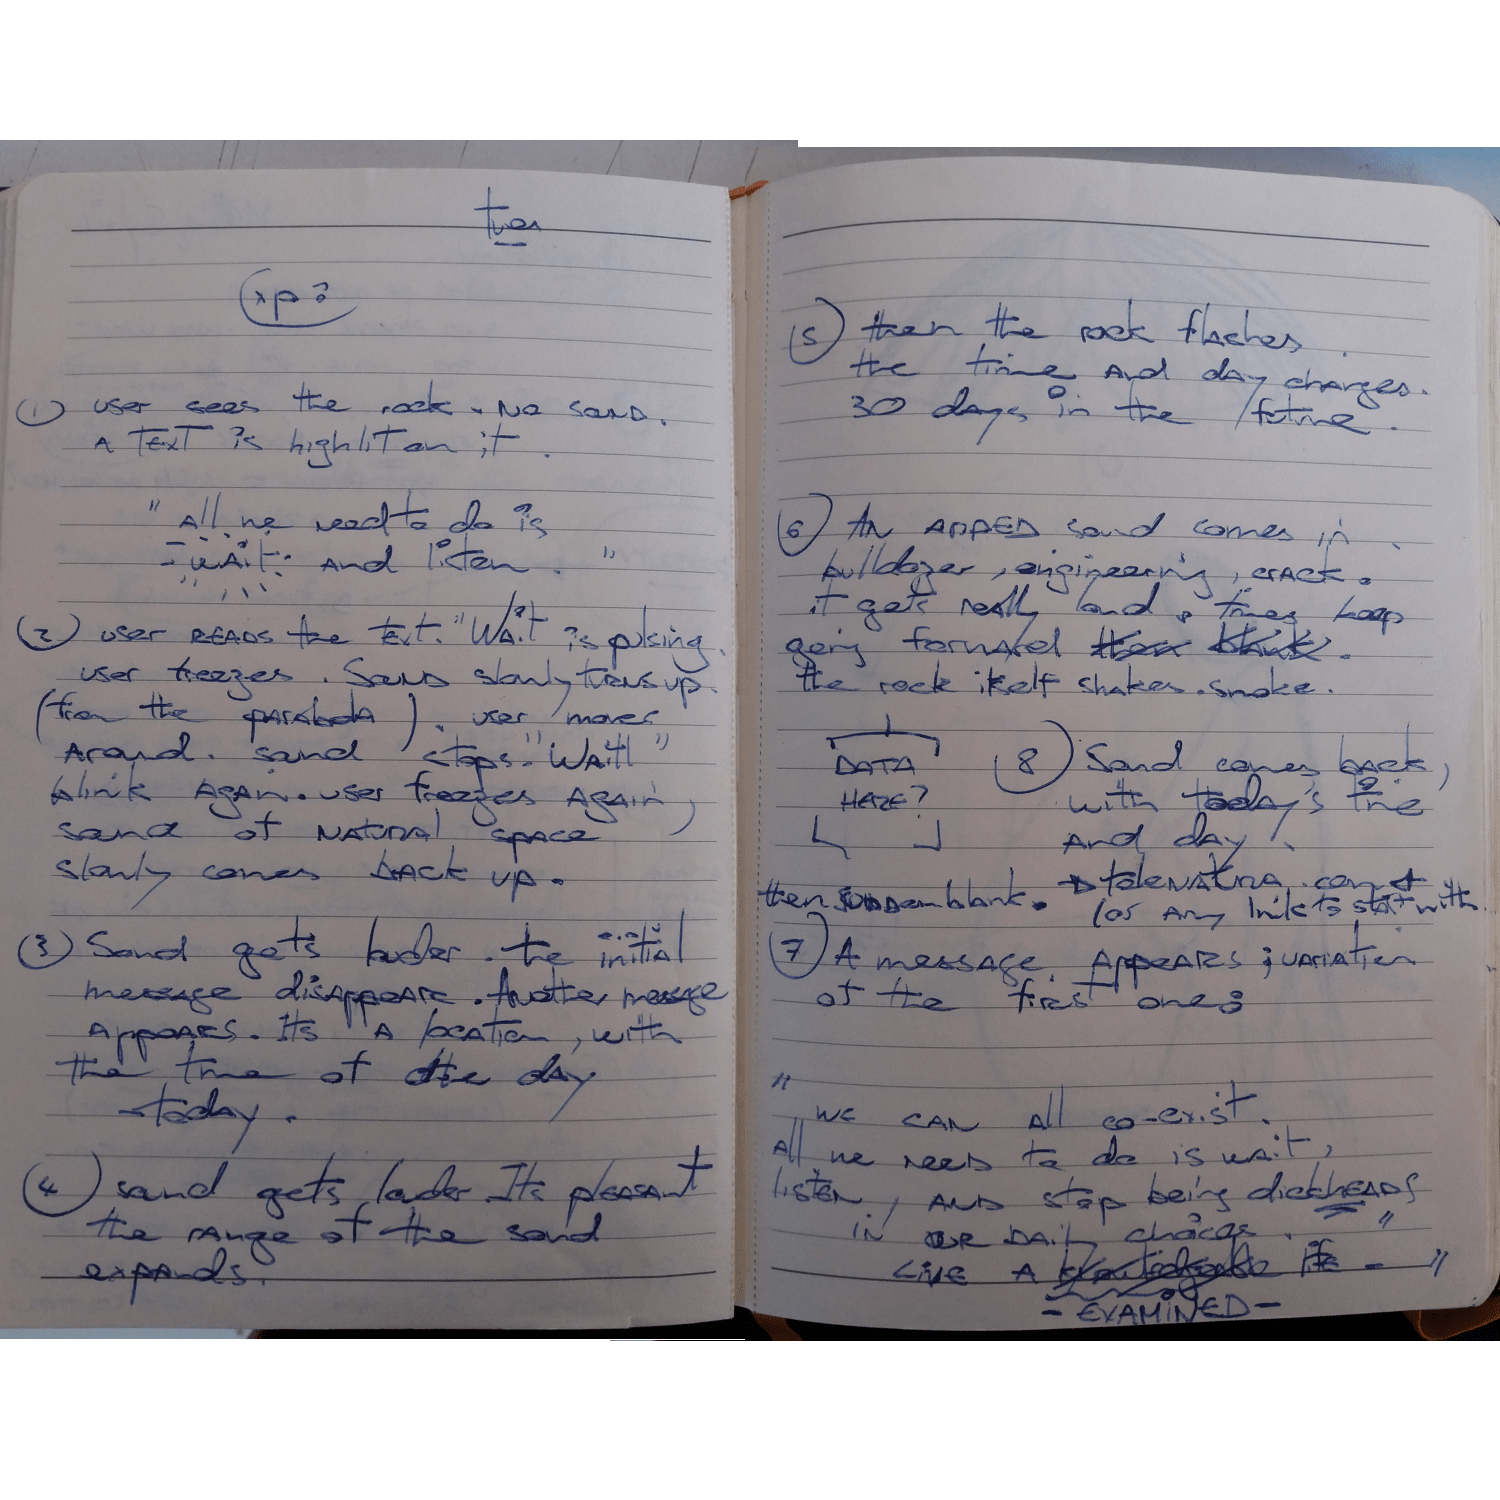 tues
xp:
1) user sees the rock. No sound.
A TEXT is highlit on it.
" All we need to do is
- wait - and listen. "
2) user READS the text. "Wait" is pulsing.
user freezes. Sound slowly turns up.
(from the parabola). user moves
Around. sound stops. "Wait"
blink AGAIN. user freezes AGAIN,
sound of NATURAL space
slowly comes back up.
3) Sound gets louder. the initial
message disappears. Another message
appears. Its A location, with
the time of the day
today.
4) sound gets louder. Its pleasant
the range of the sound
expands.
5) then the rock flashes.
the time and day changes.
30 days in the future.
6) AN ADDED sound comes in.
bulldozer, engineering, crack.
it gets really loud. times keep
going forward.
the rock itself shakes. smoke.
DATA
HERE?
then sudden blank.
7) A message Appears; variation
of the first one:
" we CAN All co-exist.
All we need to do is wait,
listen, AND stop being dickheads
in our DAily choices. "
LIVE A life - "
- EXAMINED -
8) Sound comes back,
with today's time
And day!
(or any link to start with